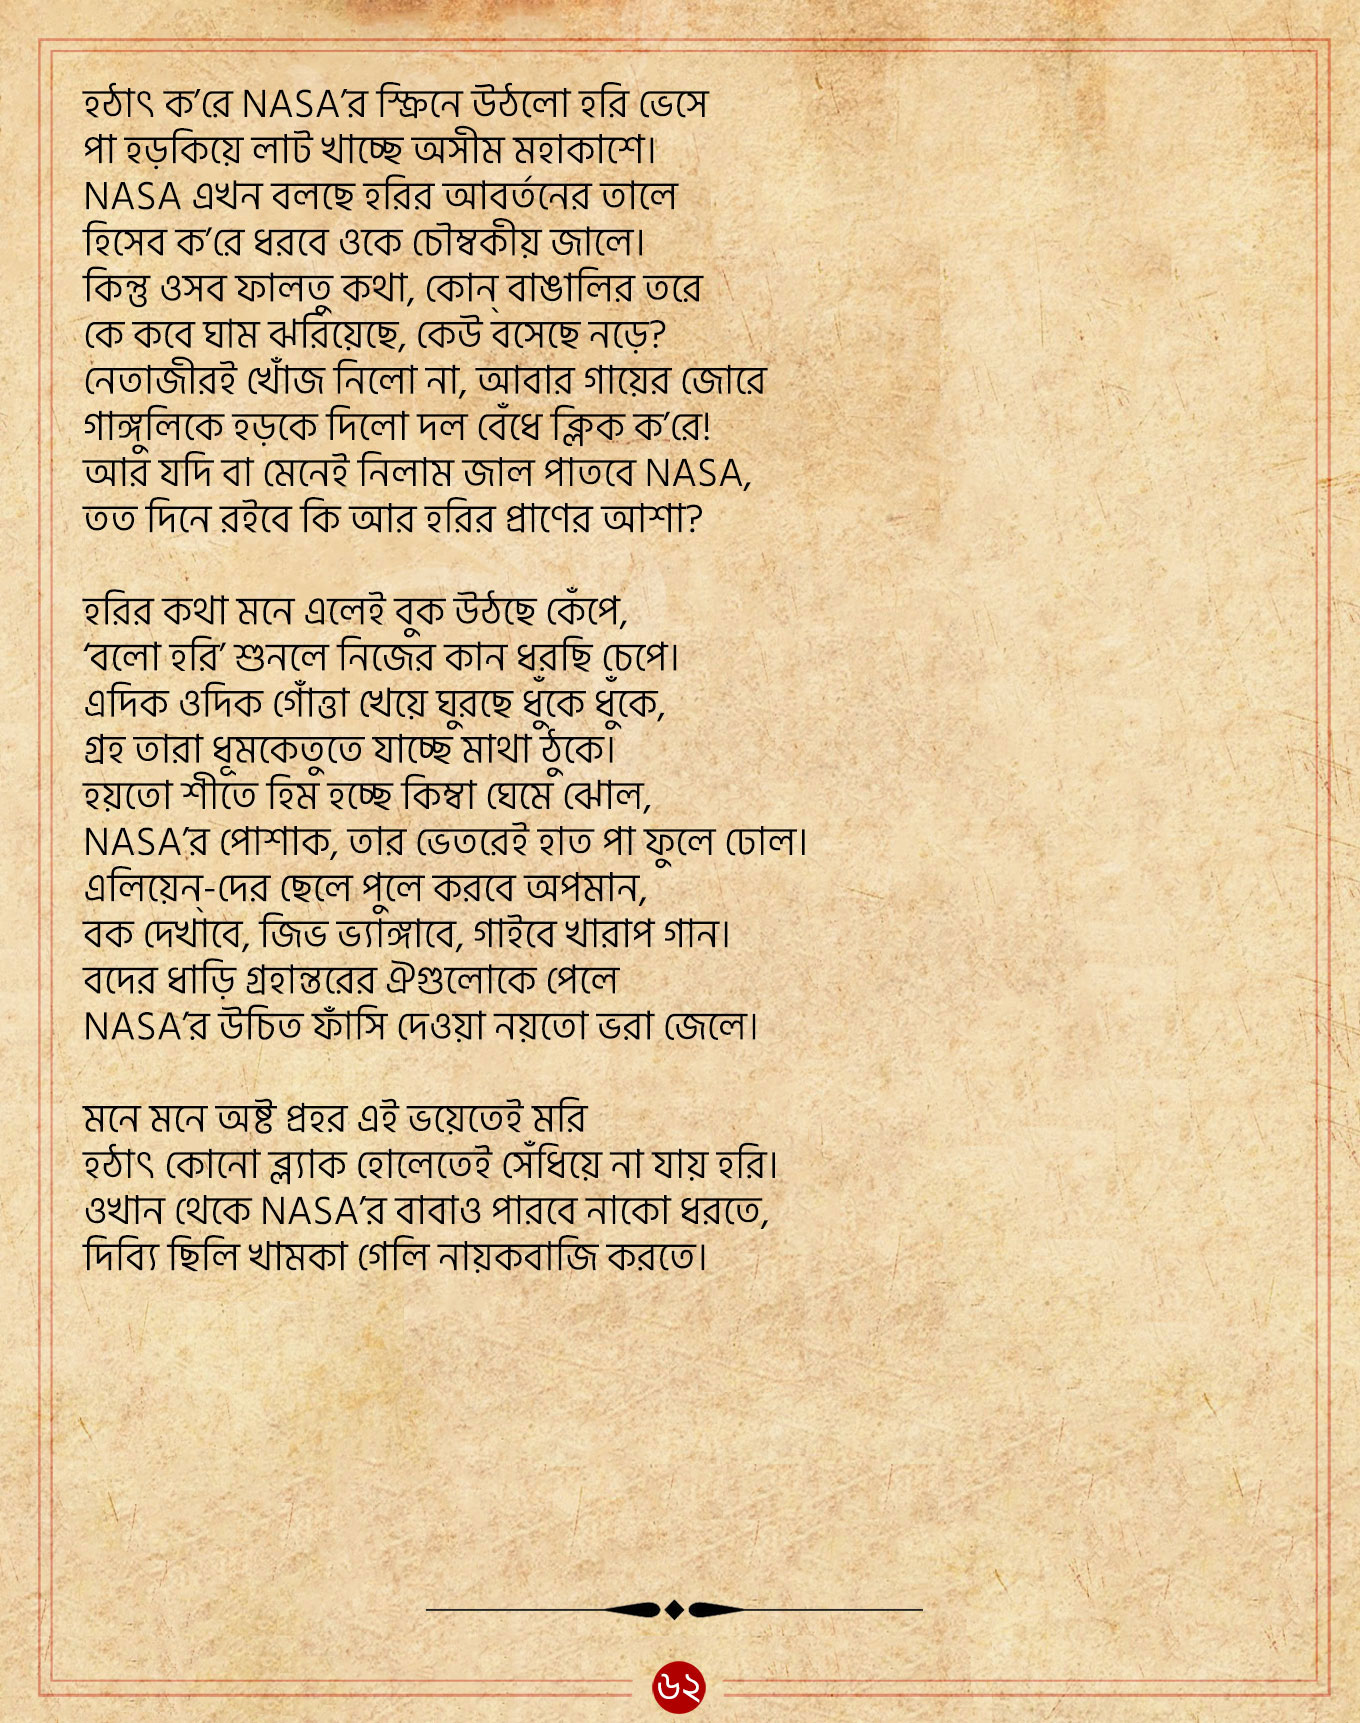 হঠাৎ ক’রে NASA’র স্ক্রিনে উঠলো হরি ভেসে
পা হড়কিয়ে লাট খাচ্ছে অসীম মহাকাশে।
NASA এখন বলছে হরির আবর্তনের তালে
হিসেব ক’রে ধরবে ওকে চৌম্বকীয় জালে।
কিন্তু ওসব ফালতু কথা, কোন্ বাঙালির তরে
কে কবে ঘাম ঝরিয়েছে, কেউ বসেছে নড়ে?
নেতাজীরই খোঁজ নিলো না, আবার গায়ের জোরে
গাঙ্গুলিকে হড়কে দিলো দল বেঁধে ক্লিক ক’রে!
আর যদি বা মেনেই নিলাম জাল পাতবে NASA,
তত দিনে রইবে কি আর হরির প্রাণের আশা?
হরির কথা মনে এলেই বুক উঠছে কেঁপে,
‘বলো হরি’ শুনলে নিজের কান ধরছি চেপে।
এদিক ওদিক গোঁত্তা খেয়ে ঘুরছে ধুঁকে ধুঁকে,
গ্রহ তারা ধূমকেতুতে যাচ্ছে মাথা ঠুকে।
হয়তো শীতে হিম হচ্ছে কিম্বা ঘেমে ঝোল,
NASA’র পোশাক, তার ভেতরেই হাত পা ফুলে ঢোল।
এলিয়েন্-দের ছেলে পুলে করবে অপমান,
বক দেখাবে, জিভ ভ্যাঙ্গাবে, গাইবে খারাপ গান।
বদের ধাড়ি গ্রহান্তরের ঐগুলোকে পেলে
NASA’র উচিত ফাঁসি দেওয়া নয়তো ভরা জেলে।
মনে মনে অষ্ট প্রহর এই ভয়েতেই মরি
হঠাৎ কোনো ব্ল্যাক হোলেতেই সেঁধিয়ে না যায় হরি।
ওখান থেকে NASA’র বাবাও পারবে নাকো ধরতে,
দিব্যি ছিলি খামকা গেলি নায়কবাজি করতে।
৬২